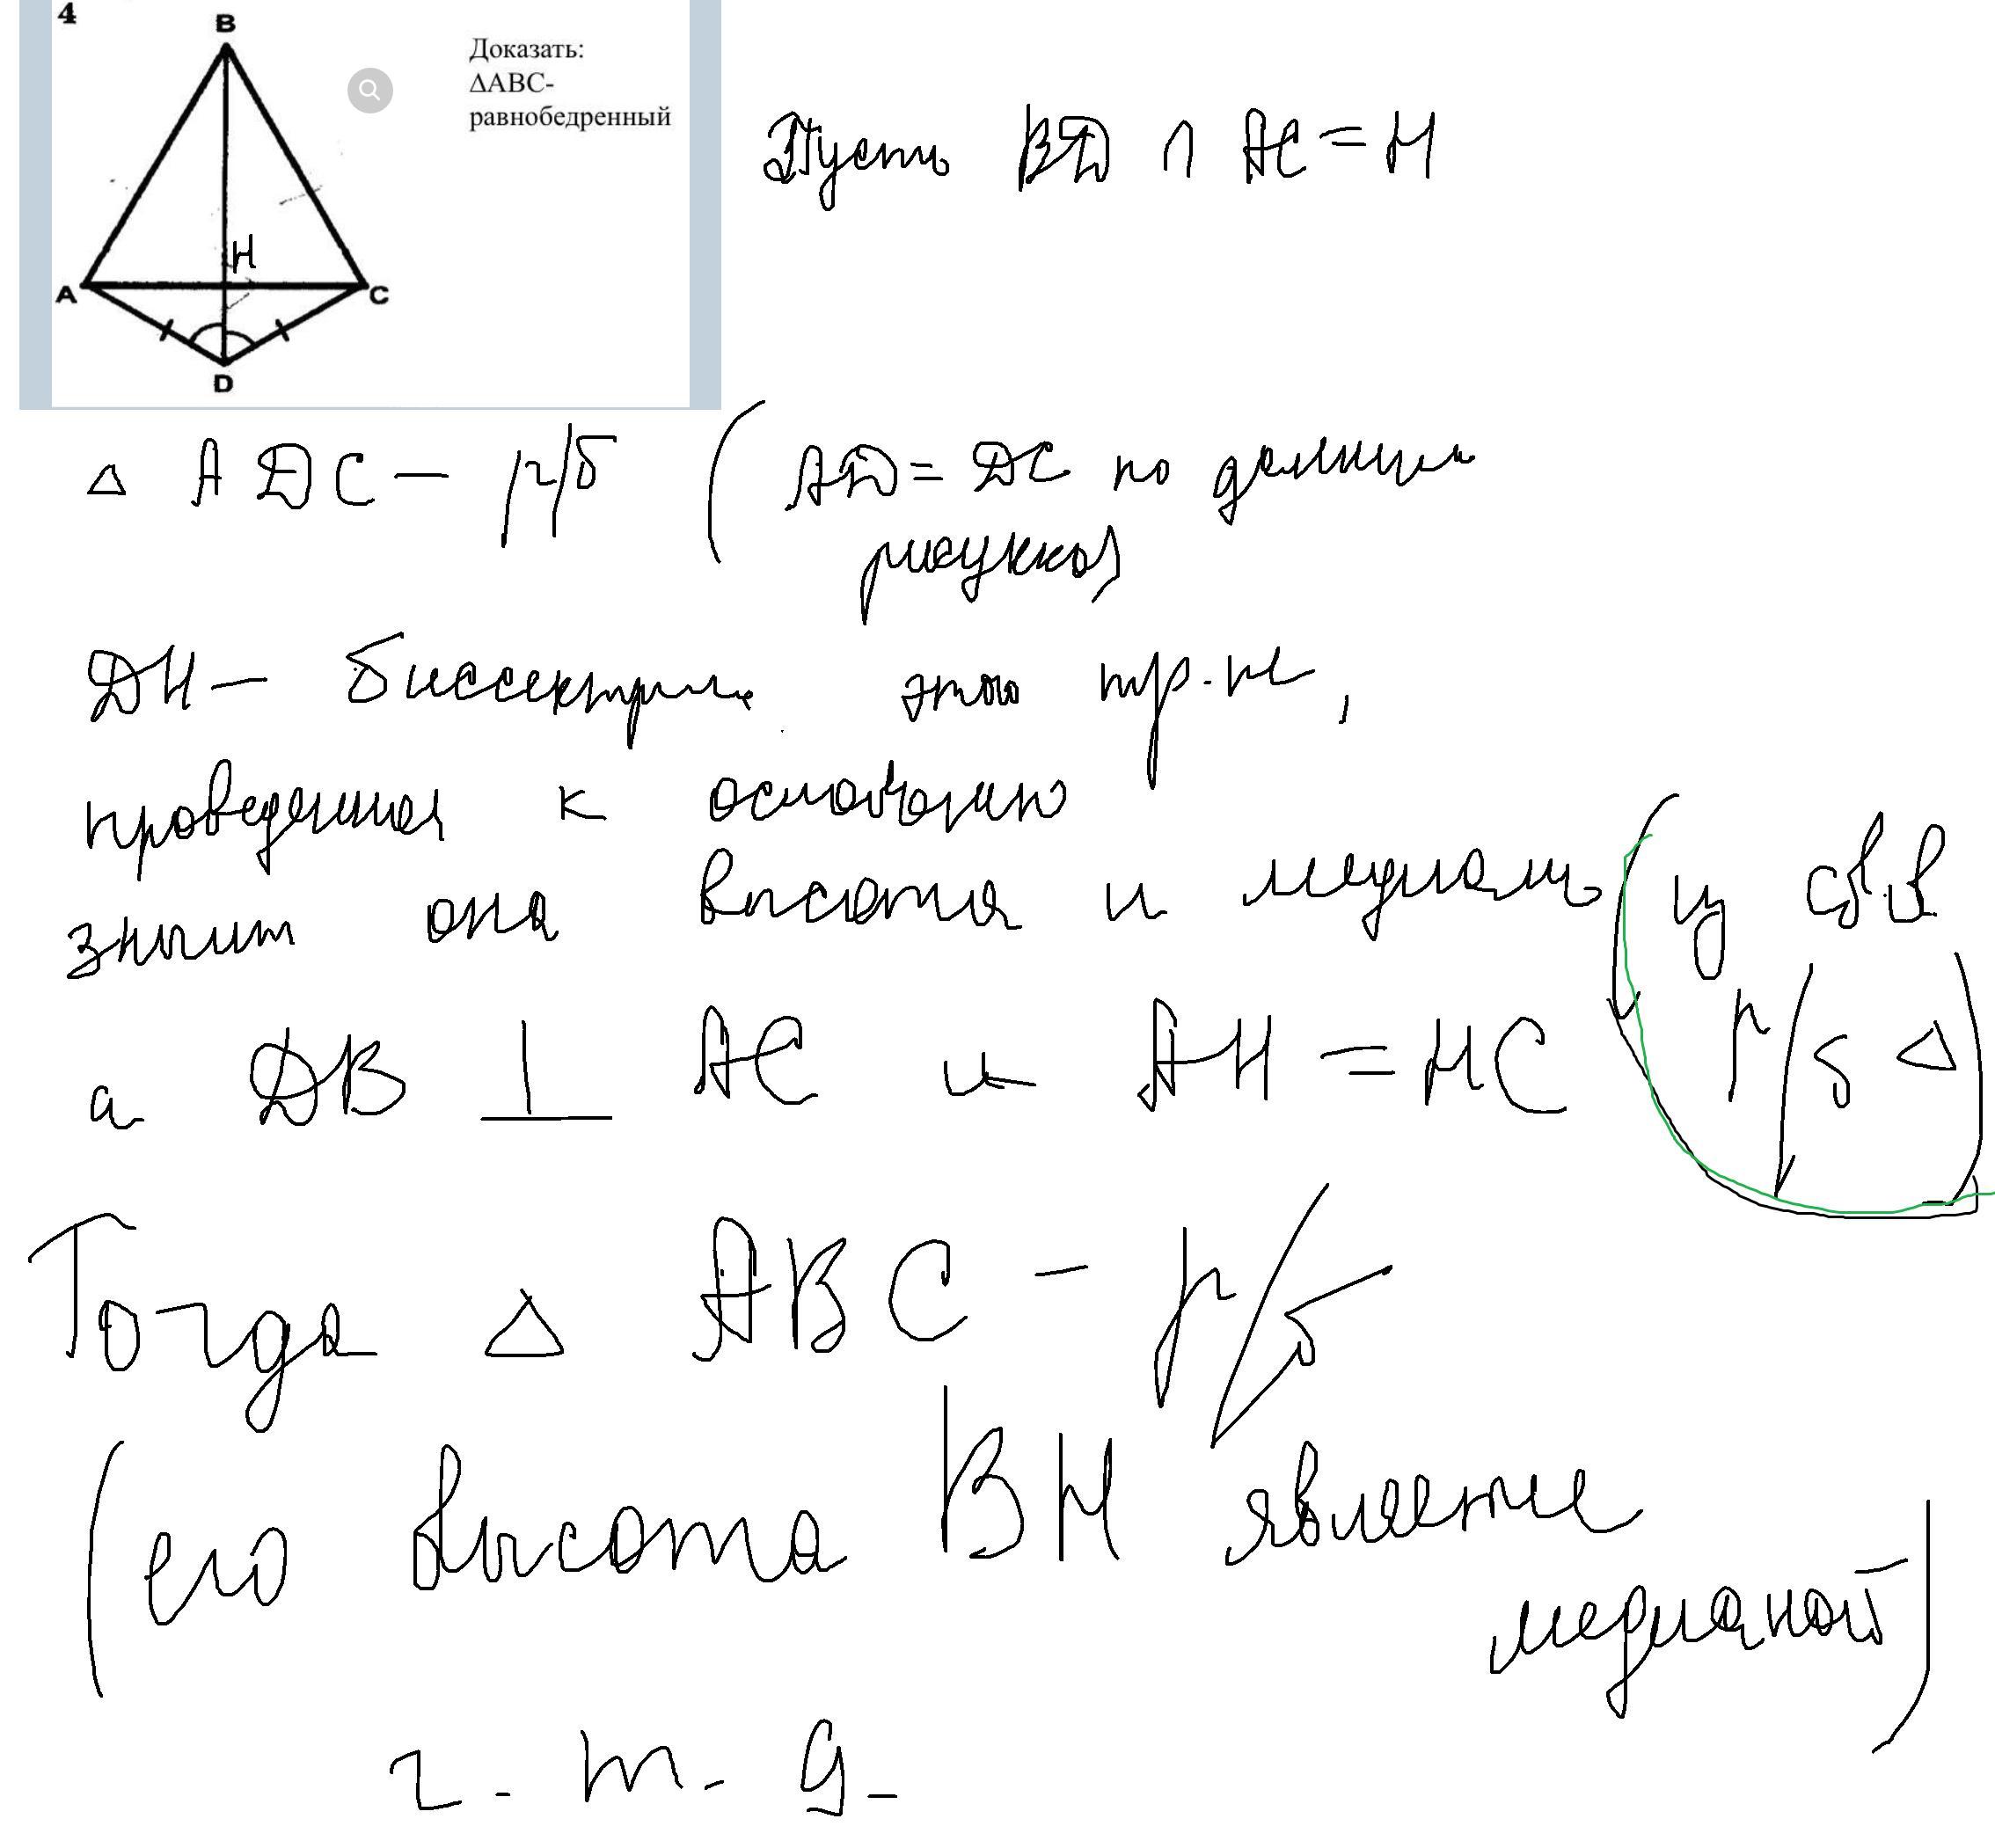 4
B
Доказать:
ΔABC-
равнобедренный
Пусть BD ∩ AC = H
H
A
C
D
Δ ADC - р/б (AD = DC по данным
рисунка)
DH - биссектриса этого тр-ка,
проведенная к основанию
значит она высота и медиана (из св-в
р/б Δ)
а DB ⊥ AC и AH = HC
Тогда Δ ABC - р/б
(его высота BH является
медианой)
ч. т. д.